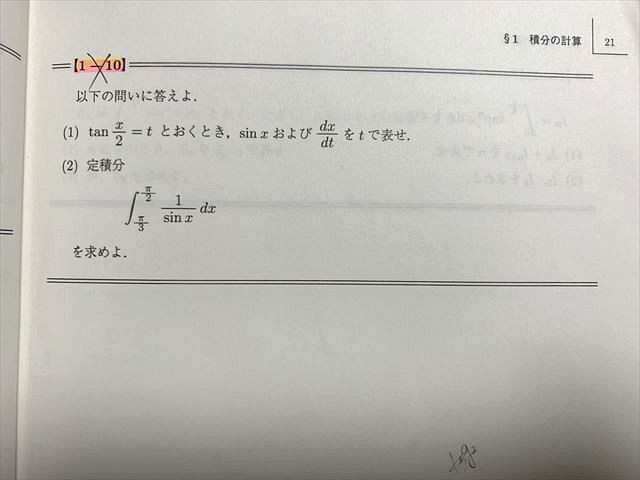 §1 積分の計算 21
【1-10】
以下の問いに答えよ.
(1) tan x/2 = t とおくとき, sin x および dx/dt を t で表せ.
(2) 定積分
∫_{π/3}^{π/2} 1/sin x dx
を求めよ.